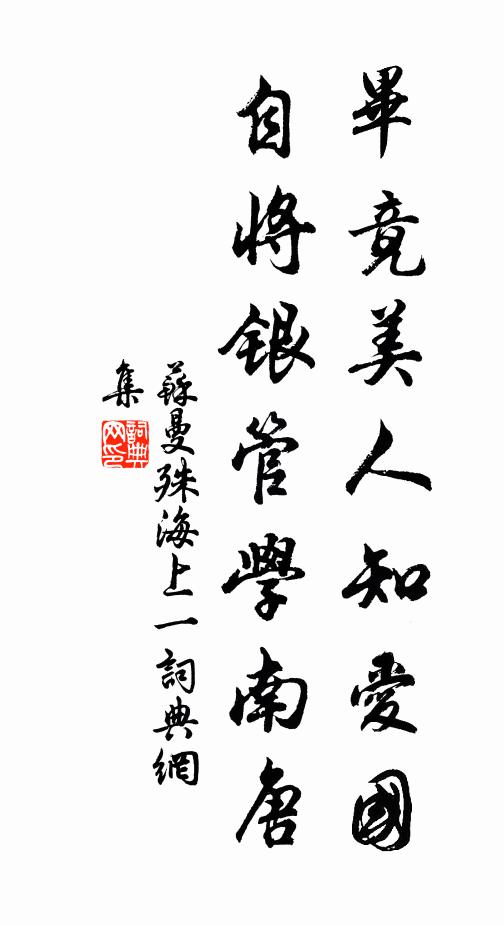 畢竟美人知愛國
自將銀管學南唐
蘇曼殊海上一詞典網
集
詞典
网印